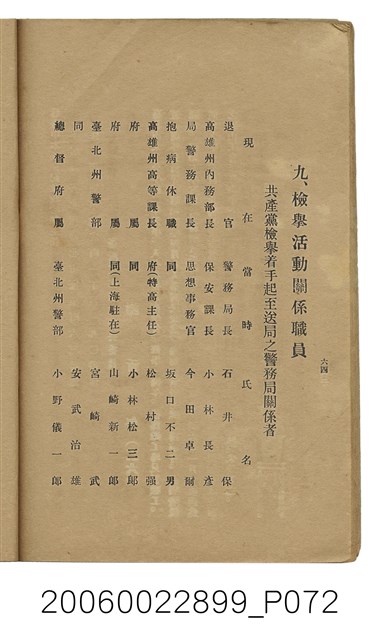 六四
九、檢舉活動關係職員
共產黨檢舉着手起至送局之警務局關係者
現在 當時 氏名
退官 警務局長 石井保
高雄州內務部長 保安課長 小林長彥
局警務課長 思想事務官 今田卓爾
抱病休職 同 坂口不二男
高雄州高等課長 府(特高主任) 松村强
府屬 同 小林松三郎
府屬 同(上海駐在) 山崎新一郎
臺北州警部 宮崎武
同 安武治雄
總督府屬 臺北州警部 小野儀一郎
20060022899_P072